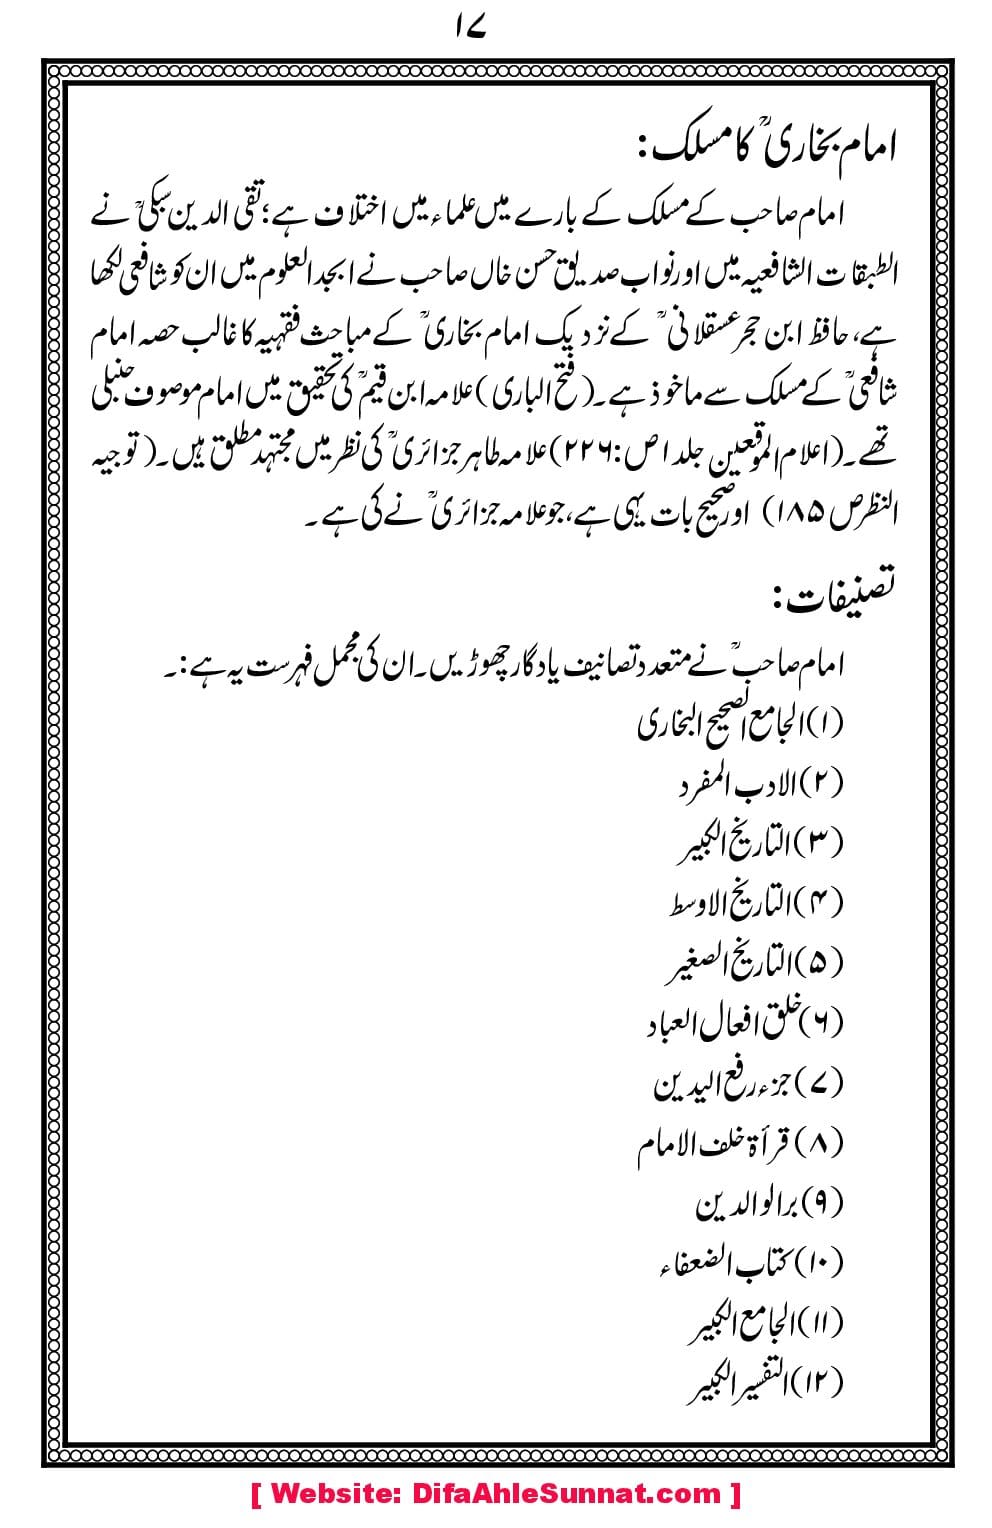 ۱۷
امام بخاریؒ کا مسلک:
امام صاحب کے مسلک کے بارے میں علماء میں اختلاف ہے؛ تقی الدین سبکیؒ نے
الطبقات الشافعیہ میں اور نواب صدیق حسن خاں صاحب نے ابجد العلوم میں ان کو شافعی لکھا
ہے، حافظ ابن حجر عسقلانیؒ کے نزدیک امام بخاریؒ کے مباحث فقہیہ کا غالب حصہ امام
شافعیؒ کے مسلک سے ماخوذ ہے۔ (فتح الباری) علامہ ابن قیمؒ کی تحقیق میں امام موصوف حنبلی
تھے۔ (اعلام الموقعین جلد ۱ ص: ۲۲۶) علامہ طاہر جزائریؒ کی نظر میں مجتہد مطلق ہیں۔ (توجیہ
النظر ص ۱۸۵) اور صحیح بات یہی ہے، جو علامہ جزائریؒ نے کی ہے۔
تصنیفات:
امام صاحبؒ نے متعدد تصانیف یادگار چھوڑیں۔ ان کی مجمل فہرست یہ ہے:۔
(۱) الجامع الصحیح البخاری
(۲) الادب المفرد
(۳) التاریخ الکبیر
(۴) التاریخ الاوسط
(۵) التاریخ الصغیر
(۶) خلق افعال العباد
(۷) جزء رفع الیدین
(۸) قرأۃ خلف الامام
(۹) برالوالدین
(۱۰) کتاب الضعفاء
(۱۱) الجامع الکبیر
(۱۲) التفسیر الکبیر
[ Website: DifaAhleSunnat.com ]